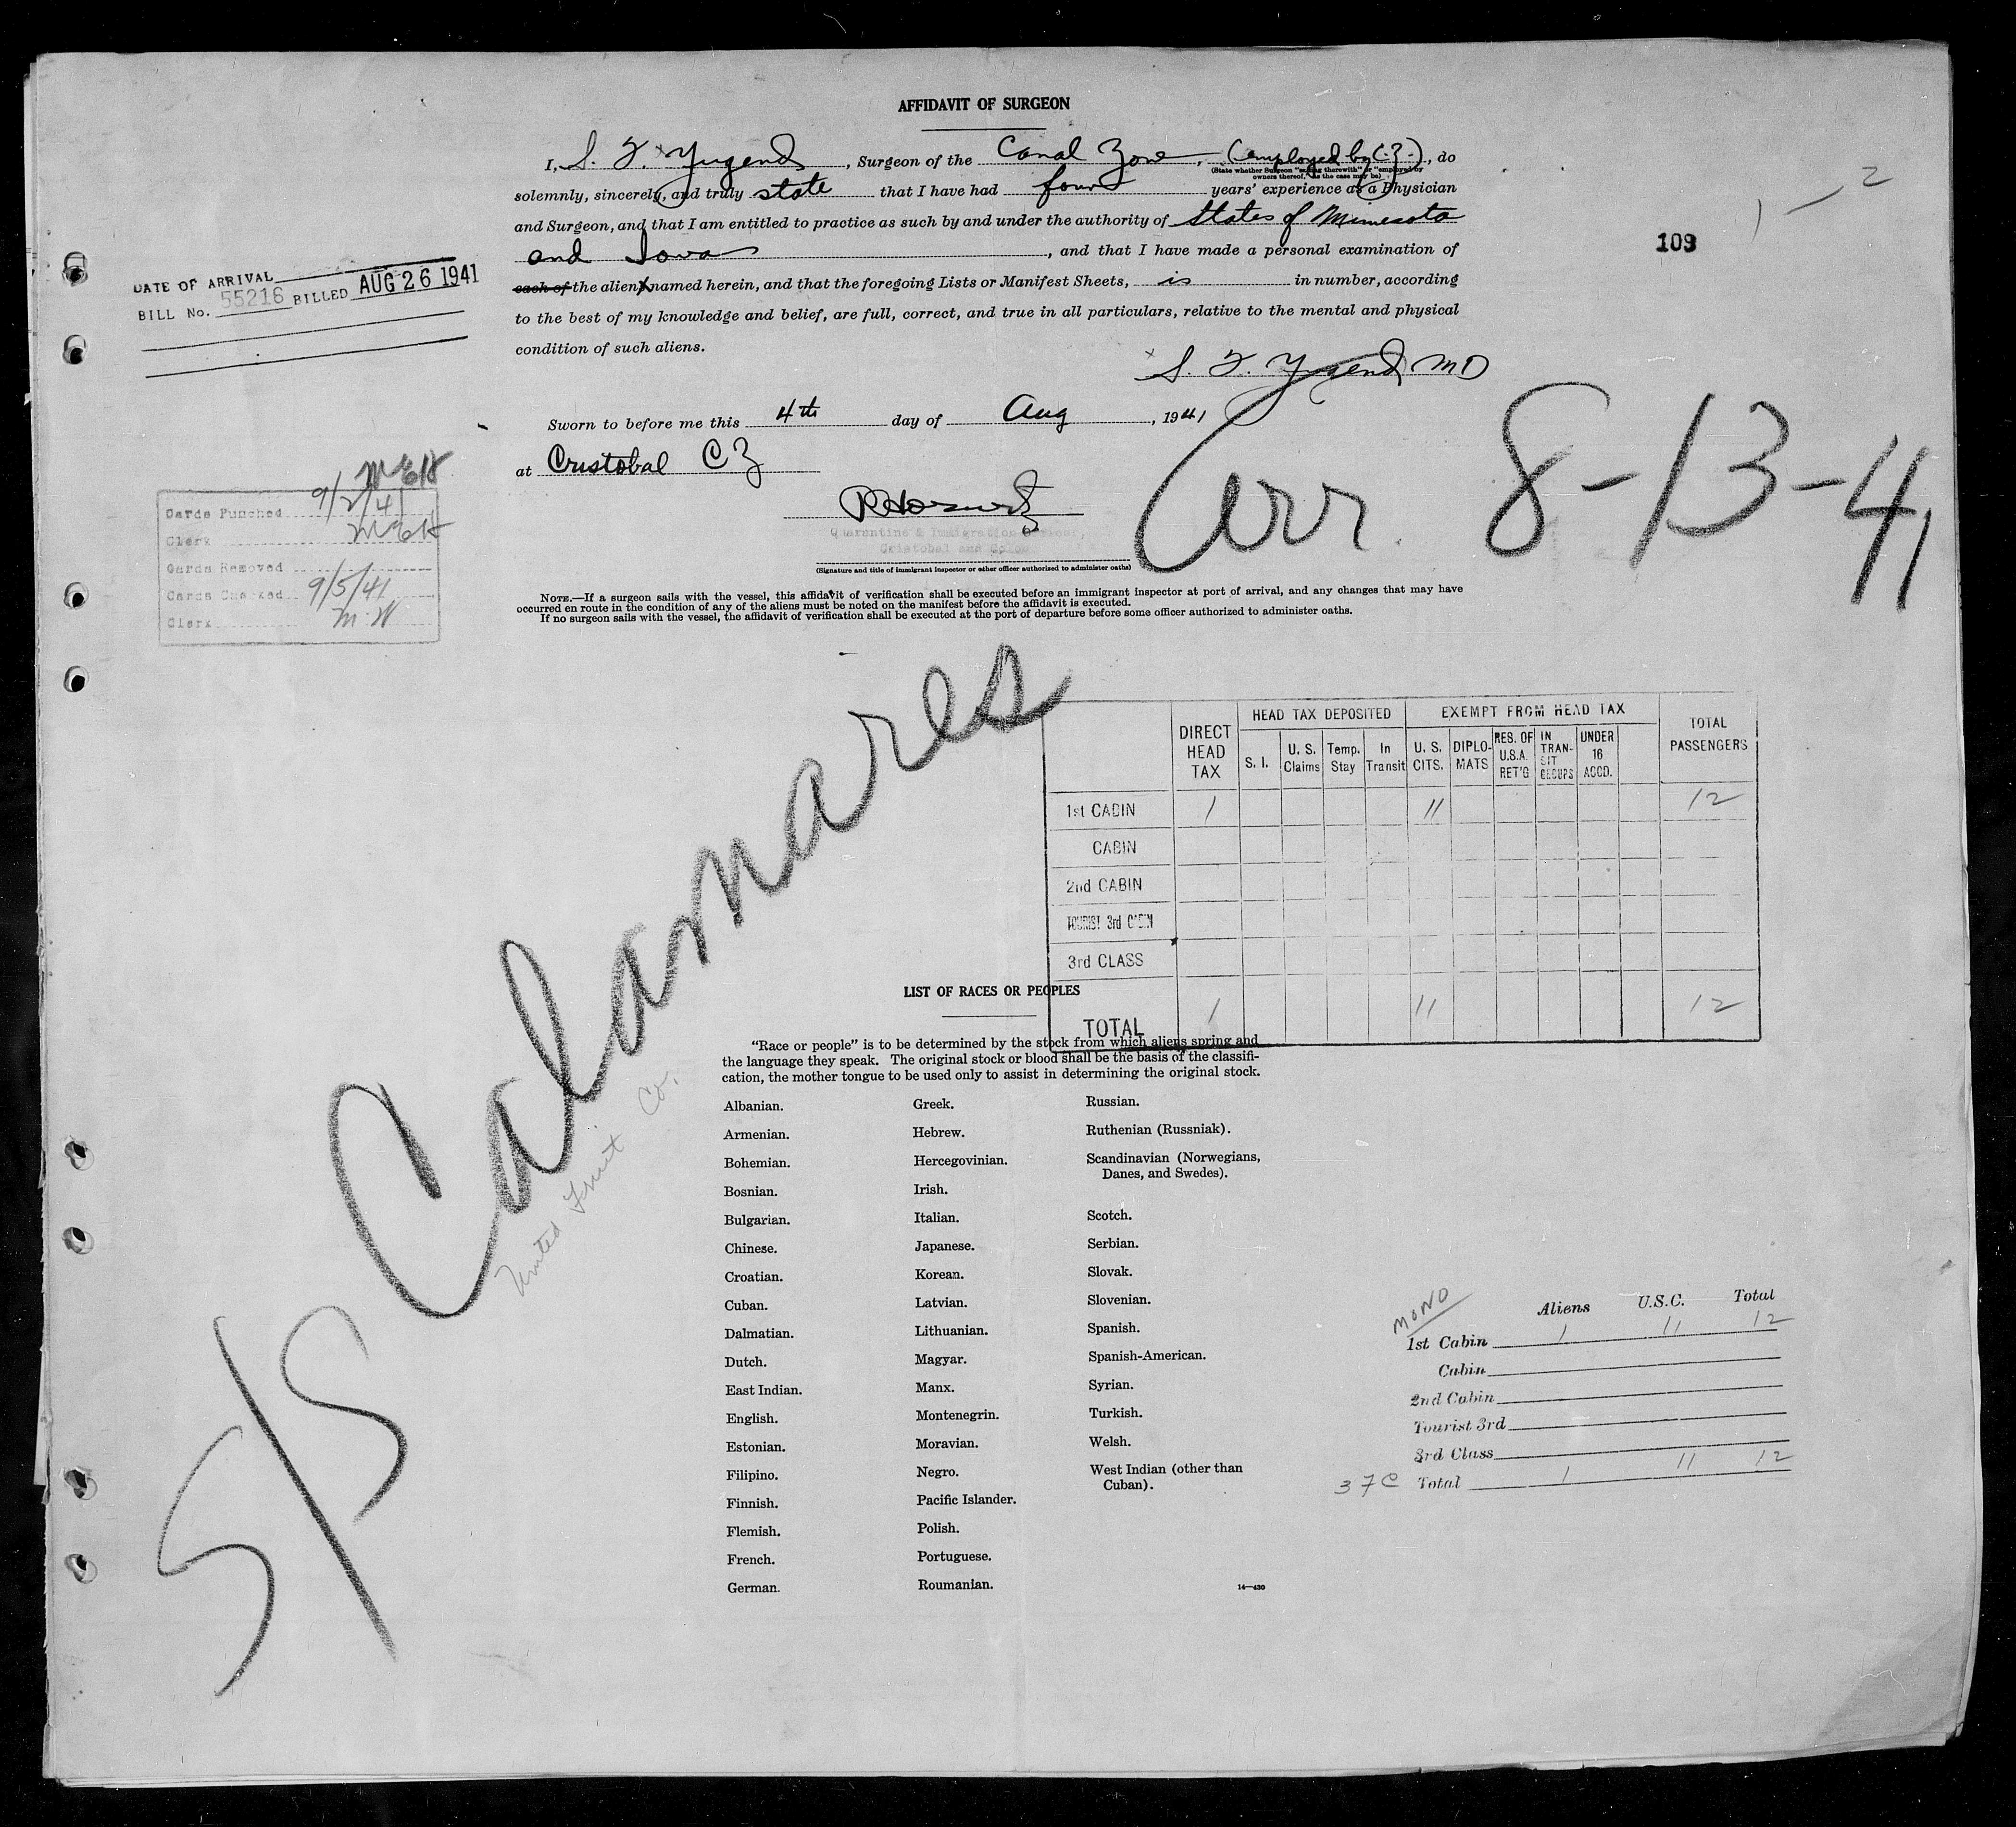 AFFIDAVIT OF SURGEON
I, S. F. Yugend, Surgeon of the Canal Zone, (employed by C.Z.), do
(State whether Surgeon "sailing therewith" or "employed by
owners thereof," as the case may be)
solemnly, sincerely, and truly state that I have had four years' experience as a Physician
and Surgeon, and that I am entitled to practice as such by and under the authority of States of Minnesota
and Iowa, and that I have made a personal examination of
each of the alien named herein, and that the foregoing Lists or Manifest Sheets, is in number, according
to the best of my knowledge and belief, are full, correct, and true in all particulars, relative to the mental and physical
condition of such aliens.
S. F. Yugend MD
Sworn to before me this 4th day of Aug, 1941
at Cristobal C Z
Quarantine & Immigration
Cristobal and Colon
(Signature and title of immigrant inspector or other officer authorized to administer oaths)
NOTE.—If a surgeon sails with the vessel, this affidavit of verification shall be executed before an immigrant inspector at port of arrival, and any changes that may have
occurred en route in the condition of any of the aliens must be noted on the manifest before the affidavit is executed.
If no surgeon sails with the vessel, the affidavit of verification shall be executed at the port of departure before some officer authorized to administer oaths.
1 — 2
109
DATE OF ARRIVAL
BILL No. 55216 BILLED AUG 26 1941
Cards Punched 9/2/41
Clerk
Cards Removed
Cards Checked 9/5/41
Clerk M.W
Arr. 8-13-41
S/S Calamares
United Fruit Co.
DIRECT HEAD TAX
HEAD TAX DEPOSITED
EXEMPT FROM HEAD TAX
TOTAL PASSENGERS
S. I.
U. S. Claims
Temp. Stay
In Transit
U. S. CITS.
DIPLOMATS
RES. OF U.S.A. RET'G
IN TRANSIT GROUPS
UNDER 16 ACCD.
1st CABIN 1 11 12
CABIN
2nd CABIN
TOURIST 3rd CABIN
3rd CLASS
TOTAL 1 11 12
LIST OF RACES OR PEOPLES
"Race or people" is to be determined by the stock from which aliens spring and
the language they speak. The original stock or blood shall be the basis of the classifi-
cation, the mother tongue to be used only to assist in determining the original stock.
Albanian.
Armenian.
Bohemian.
Bosnian.
Bulgarian.
Chinese.
Croatian.
Cuban.
Dalmatian.
Dutch.
East Indian.
English.
Estonian.
Filipino.
Finnish.
Flemish.
French.
German.
Greek.
Hebrew.
Hercegovinian.
Irish.
Italian.
Japanese.
Korean.
Latvian.
Lithuanian.
Magyar.
Manx.
Montenegrin.
Moravian.
Negro.
Pacific Islander.
Polish.
Portuguese.
Roumanian.
Russian.
Ruthenian (Russniak).
Scandinavian (Norwegians,
Danes, and Swedes).
Scotch.
Serbian.
Slovak.
Slovenian.
Spanish.
Spanish-American.
Syrian.
Turkish.
Welsh.
West Indian (other than
Cuban).
14—430
MONO
Aliens U.S.C. Total
1st Cabin 1 11 12
Cabin
2nd Cabin
Tourist 3rd
3rd Class
37C Total 1 11 12